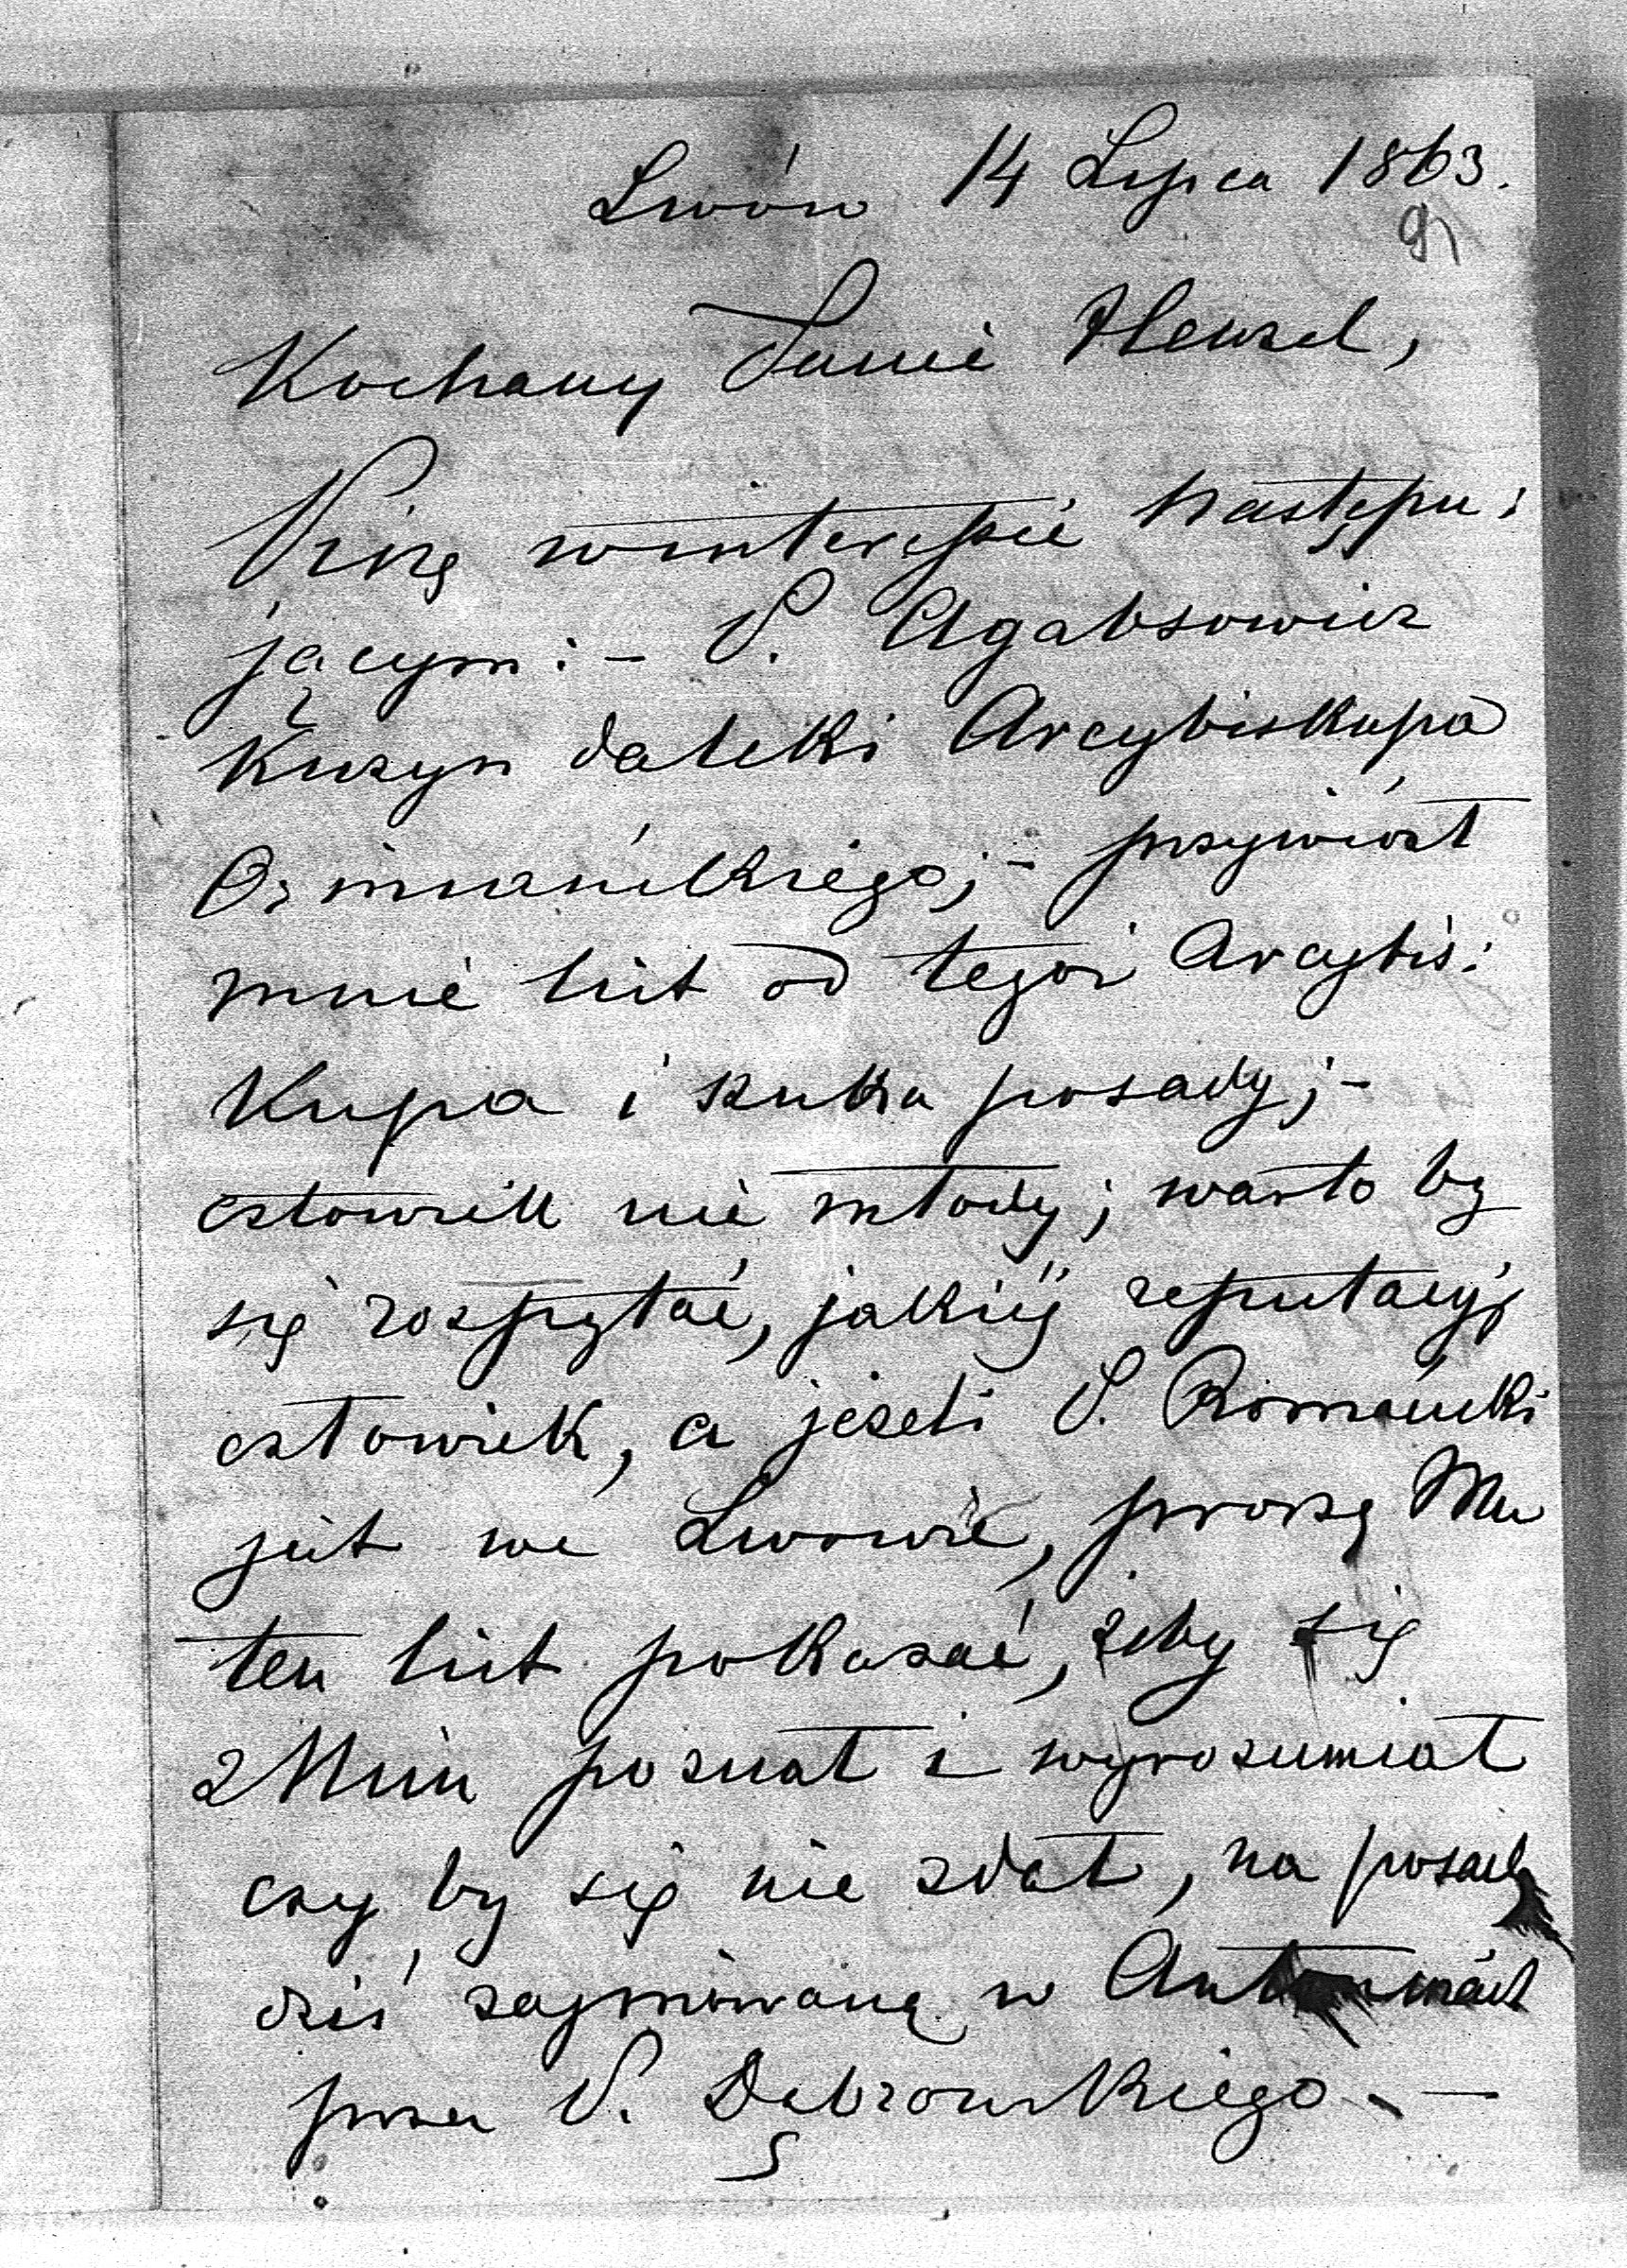 Lwów 14 Lipca 1863.
91
Kochany Panie Henzel,
Piszę w interessie następu:
jącym: - P. Agabsowicz
Kuzyn daleki Arcybiskupa
Ormiańskiego; - przywiózł
mnie list od tegoż Arcybis:
Kupa i szuka posady; -
człowiek nie młody; warto by
się rozpytać, jakiéj reputacyi
człowiek, a jeżeli P. Romański
jest we Lwowie, proszę Mu
ten list pokazać, żeby się
z Nim poznał i wyrozumiał
czy by się nie zdał, na posadę
dziś zajmowaną w Antoninach
przez P. Dąbrowskiego. -